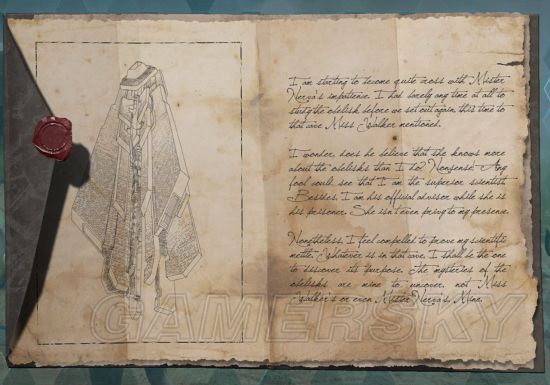 I am starting to become quite cross with Mister
Nerva's impatience. I had barely any time at all to
study the obelisk before we set out again, this time to
that cave Miss Walker mentioned.
I wonder, does he believe that she knows more
about the obelisks than I do? Nonsense. Any
fool could see that I am the superior scientist.
Besides, I am his official advisor while she is
his prisoner. She isn't even privy to my presence.
Nonetheless, I feel compelled to prove my scientific
mettle. Whatever is in that cave, I shall be the one
to discover its purpose. The mysteries of the
obelisks are mine to uncover, not Miss
Walker's or even Mister Nerva's. Mine.
GAMERSKY